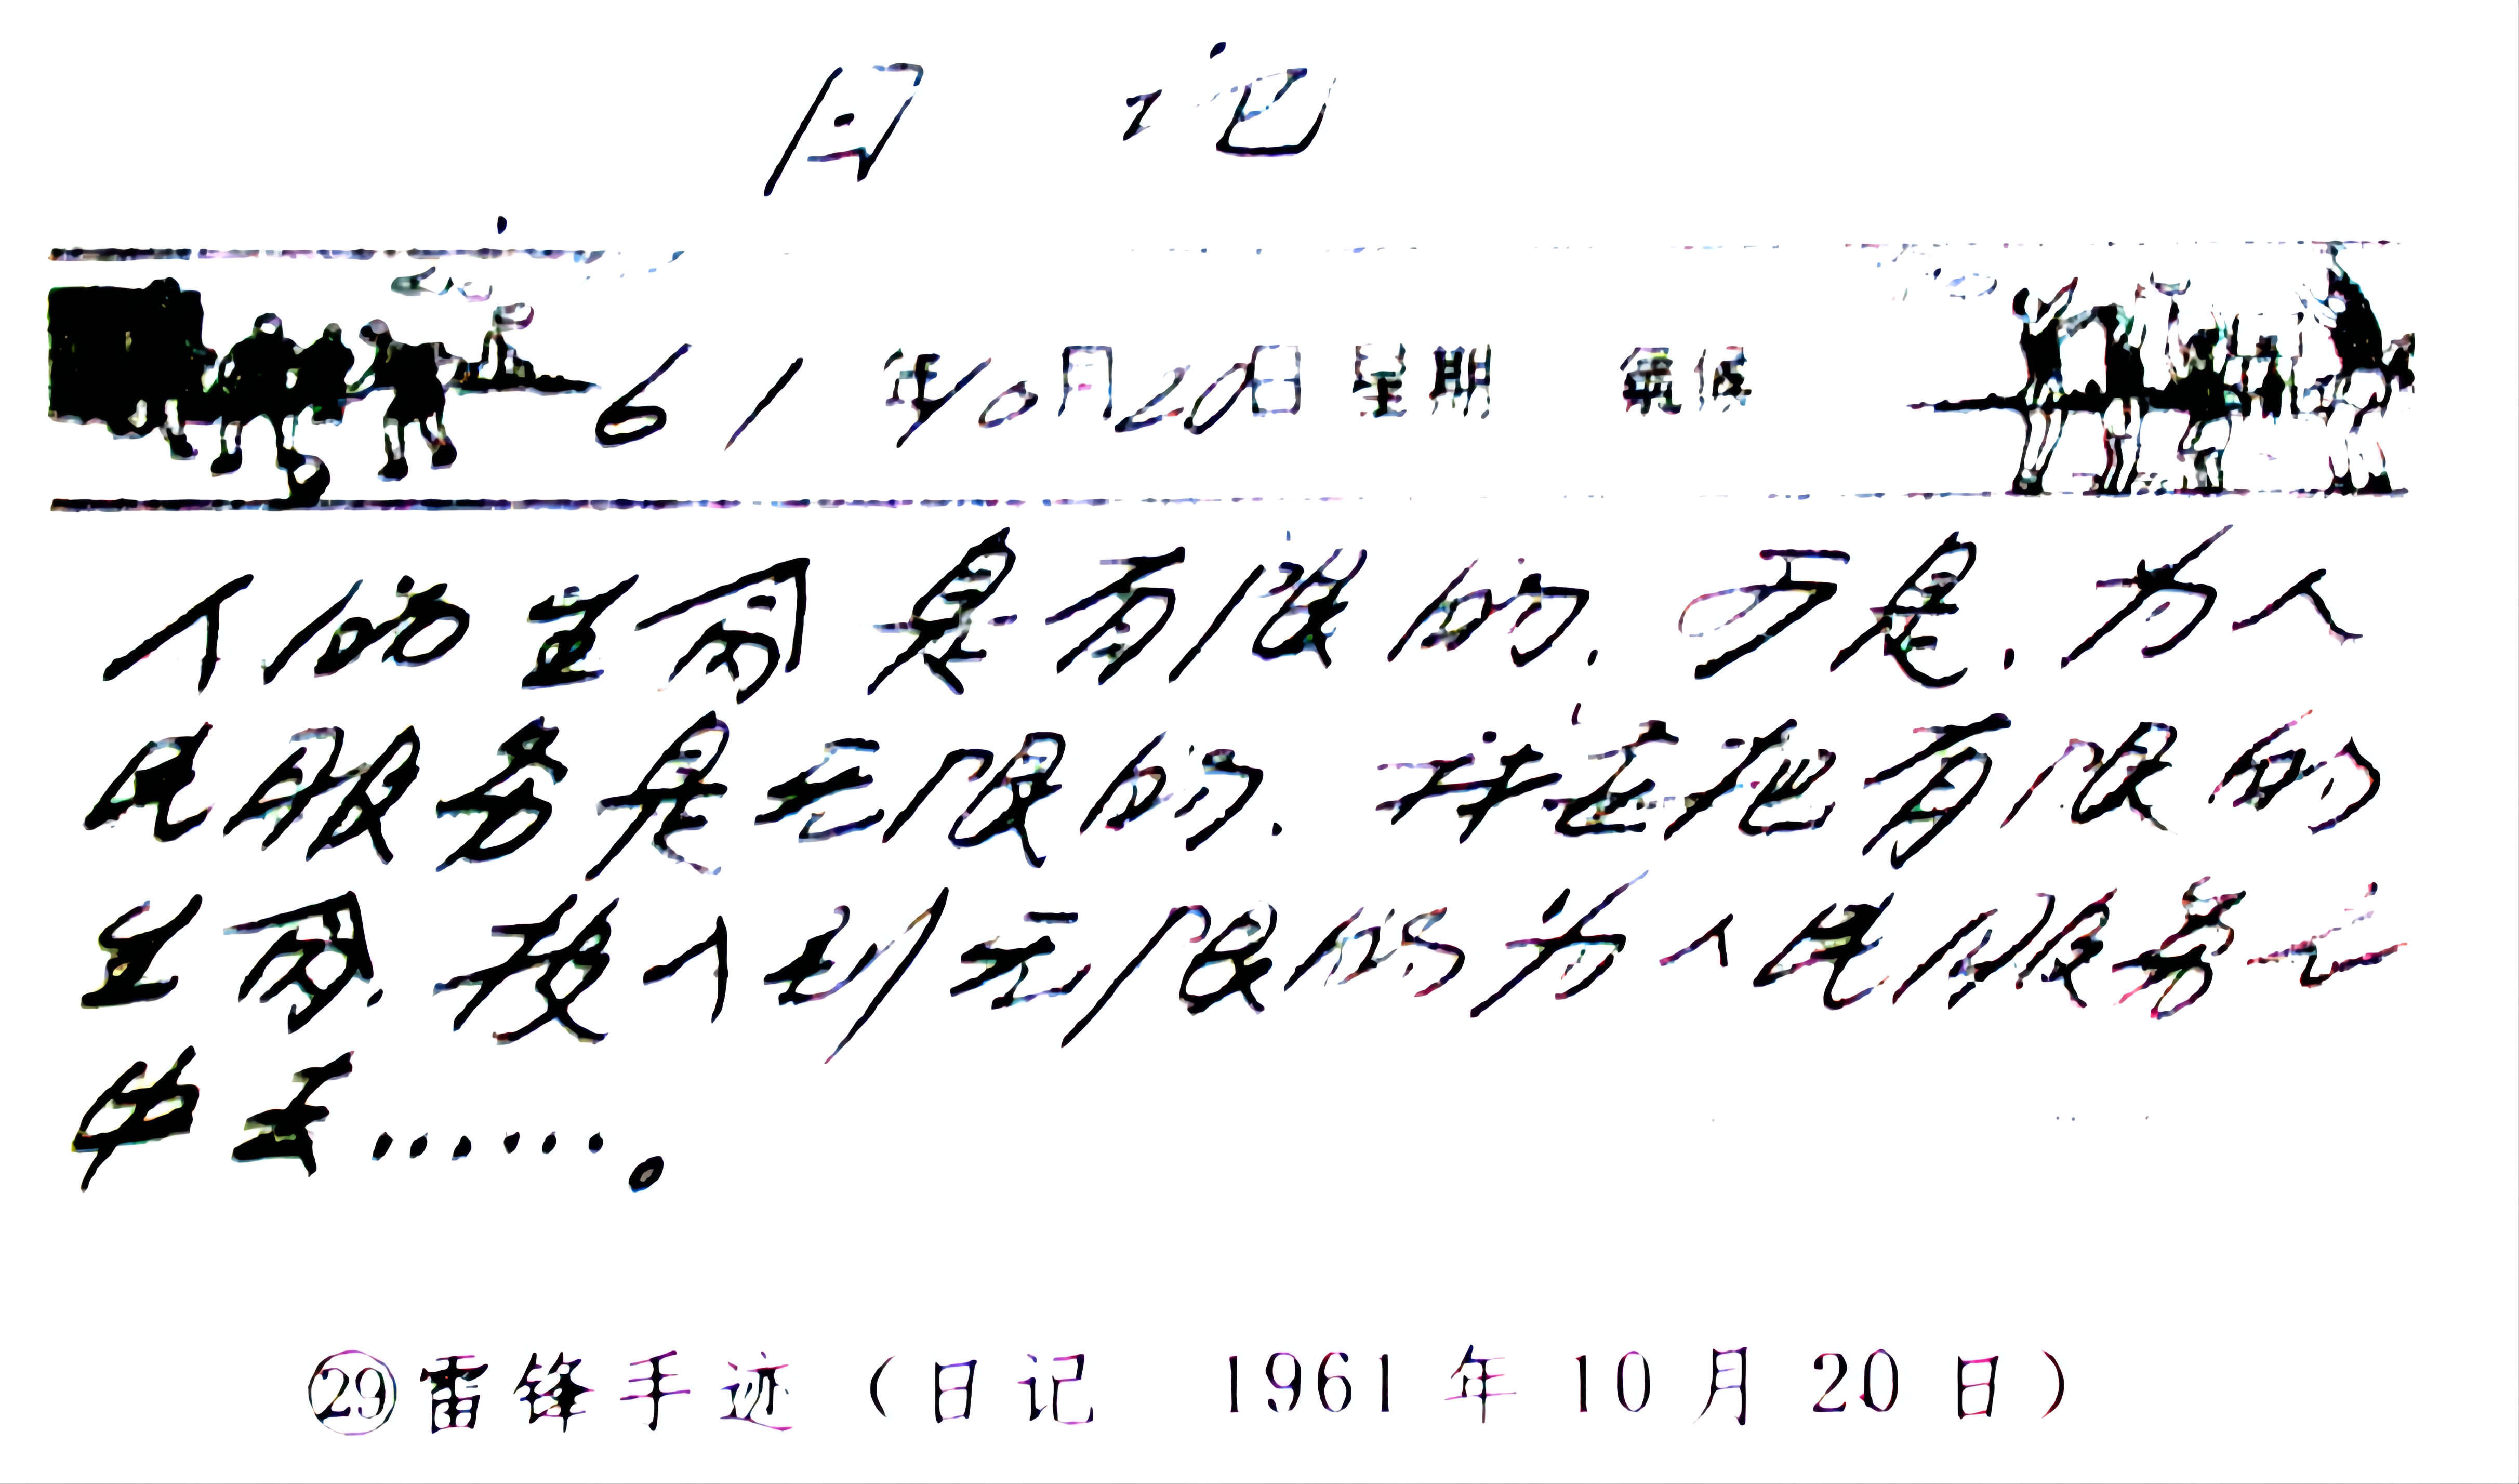 日记
61年10月20日 星期
人的生命是有限的.可是.为人
民服务是无限的.我要把有限的
生命.投入到无限的为人民服务之
中去……。
㉙雷锋手迹(日记 1961年10月20日)